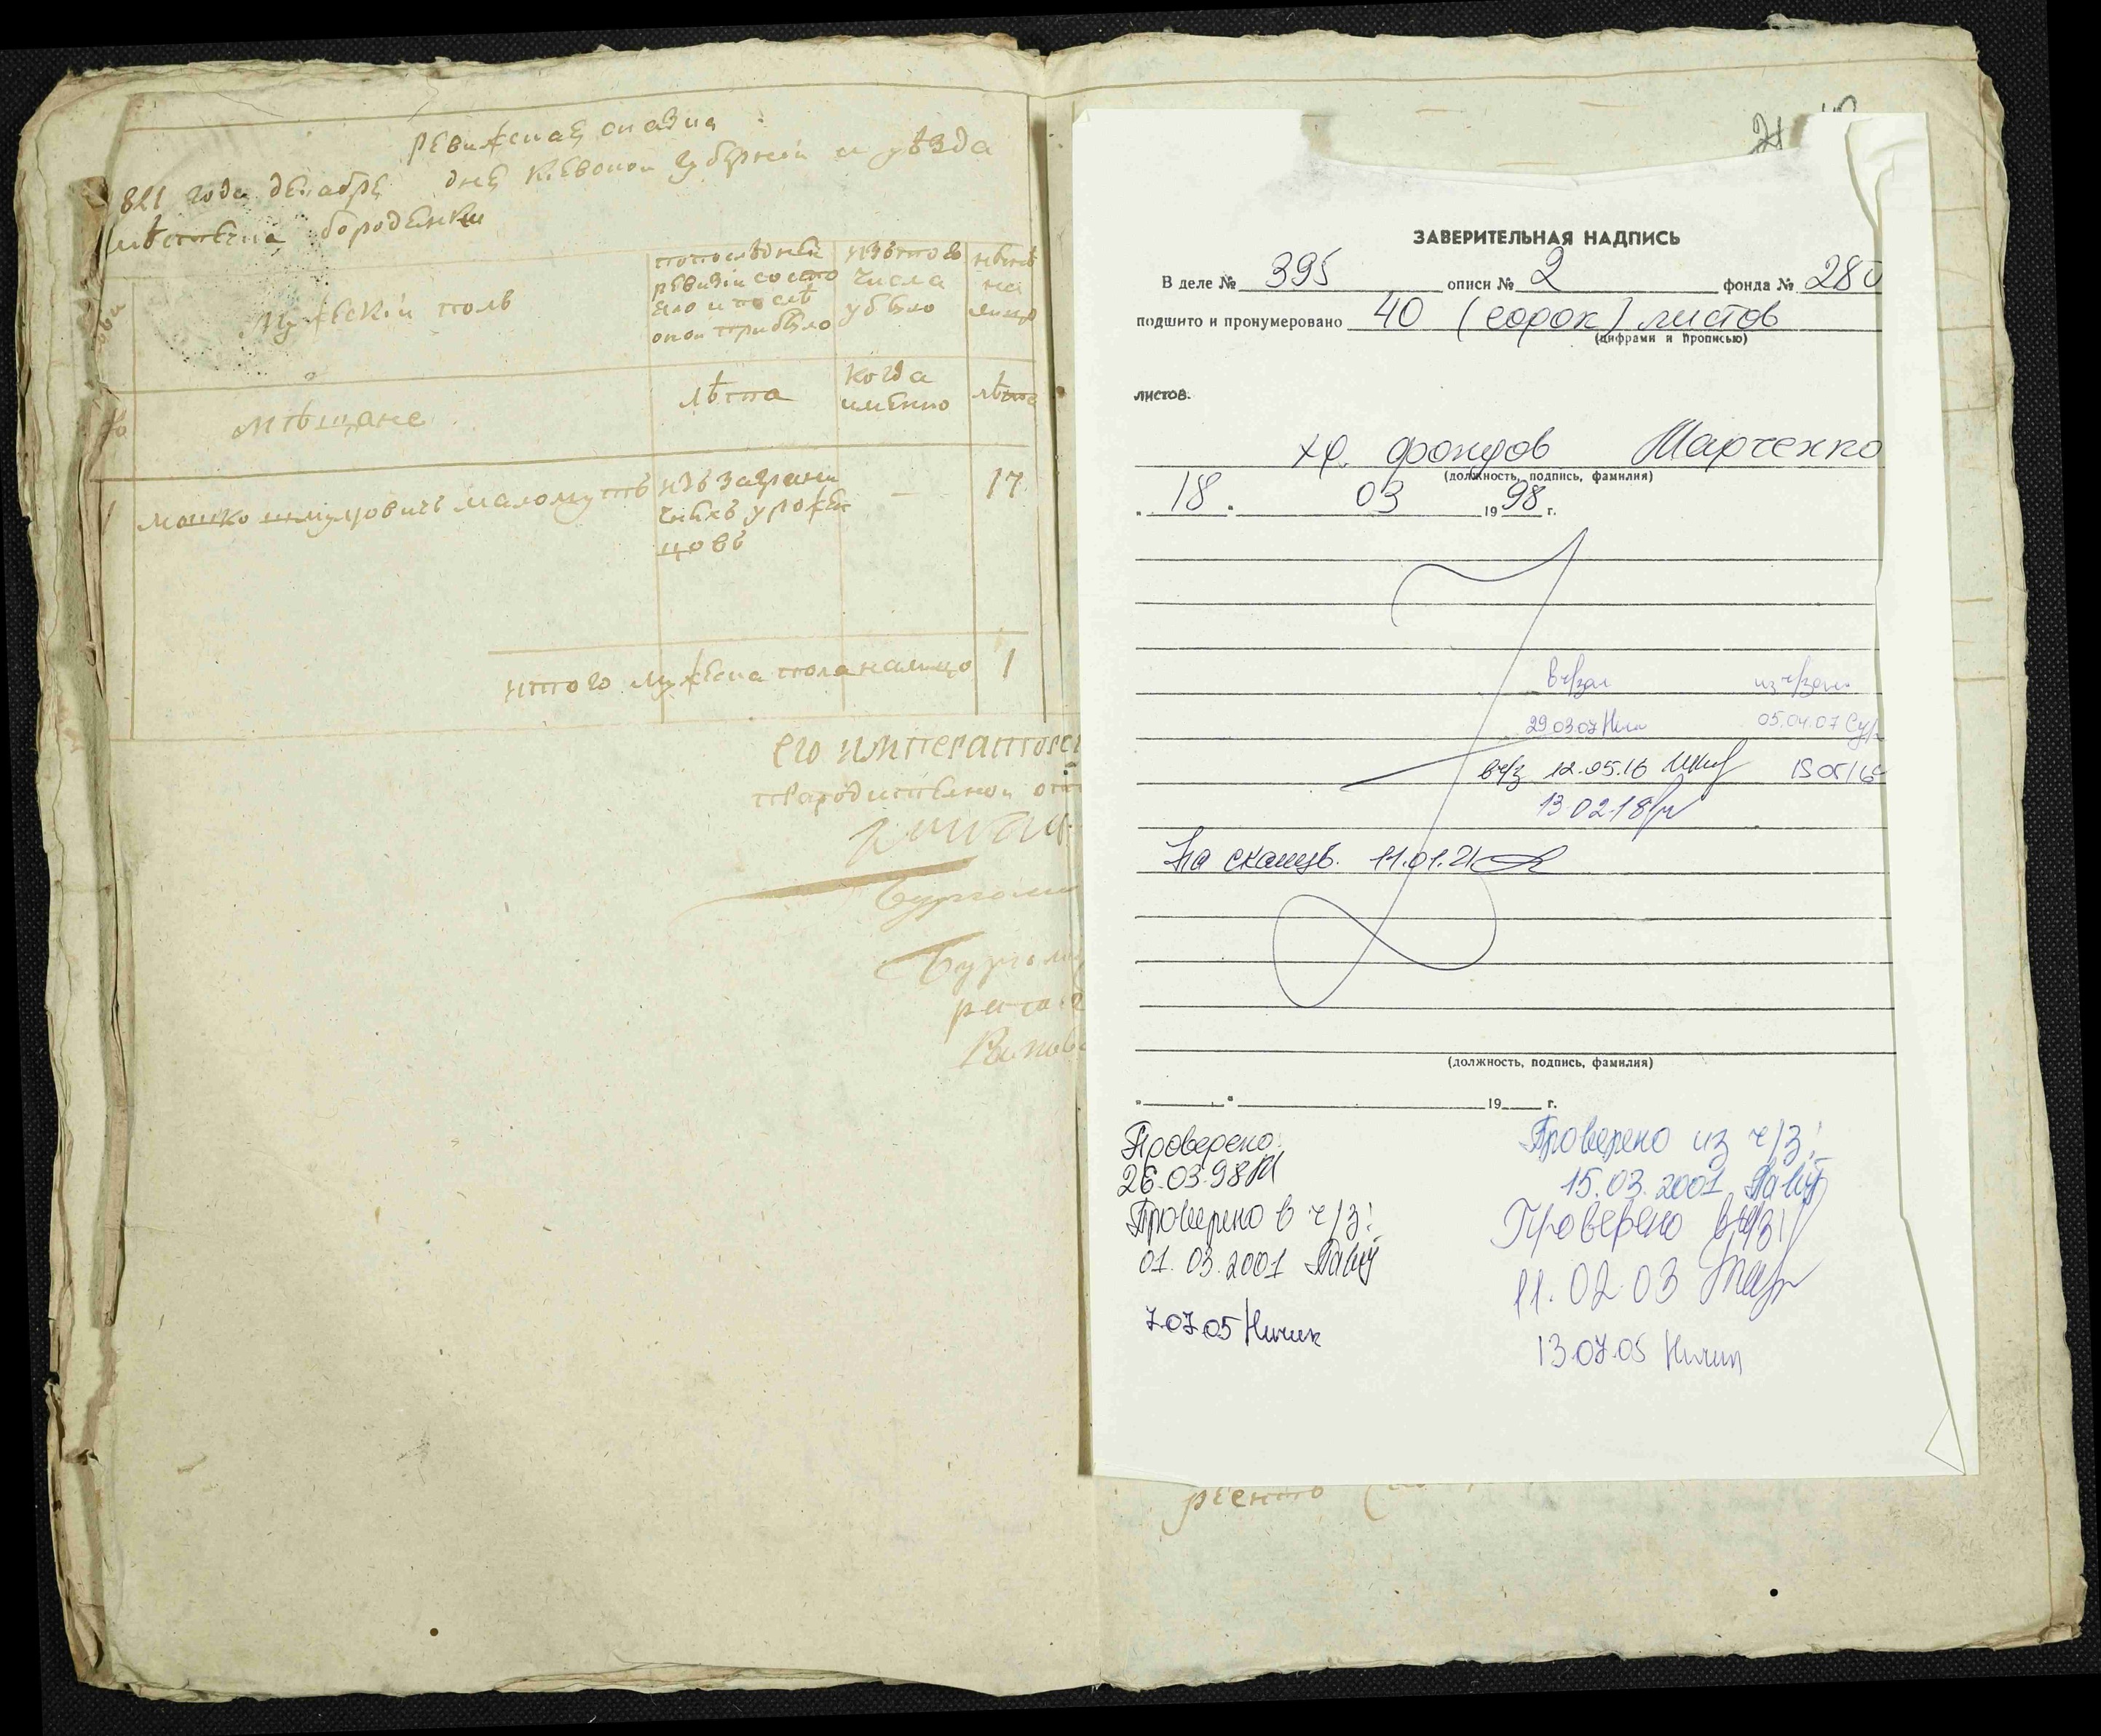 ревижская сказка
821 года декабря дня Киевской губернии и уѣзда
мѣстечка бородянки
Мужескій полъ
попослѣдней ревизіи состояло и послѣ оной прибыло
изъ того числа убыло
нынѣ на лицо
№
мѣщане
лѣта
когда именно
лѣта
1 мошко шмулювичъ маломутъ
изъ заграничныхъ урожен цовъ
—
17
итого мужеска пола налицо 1
его император
Бургоми
Бургоми
ЗАВЕРИТЕЛЬНАЯ НАДПИСЬ
В деле № 395 описи № 2 фонда № 280
подшито и пронумеровано 40 (сорок) листов
(цифрами и прописью)
листов.
хр. фондов Марченко
(должность, подпись, фамилия)
„ 18 " 03 19 98 г.
в ч/зал из ч/зала
29.03.07 05.04.07
в ч/з 12.05.16
13.02.18
На сканув. 11.01.21
(должность, подпись, фамилия)
„ " 19 г.
Проверено:
26.03.98
Проверено в ч/з:
01.03.2001
7.07.05
Проверено из ч/з:
15.03.2001
Проверено в ч/з
11.02.03
13.07.05